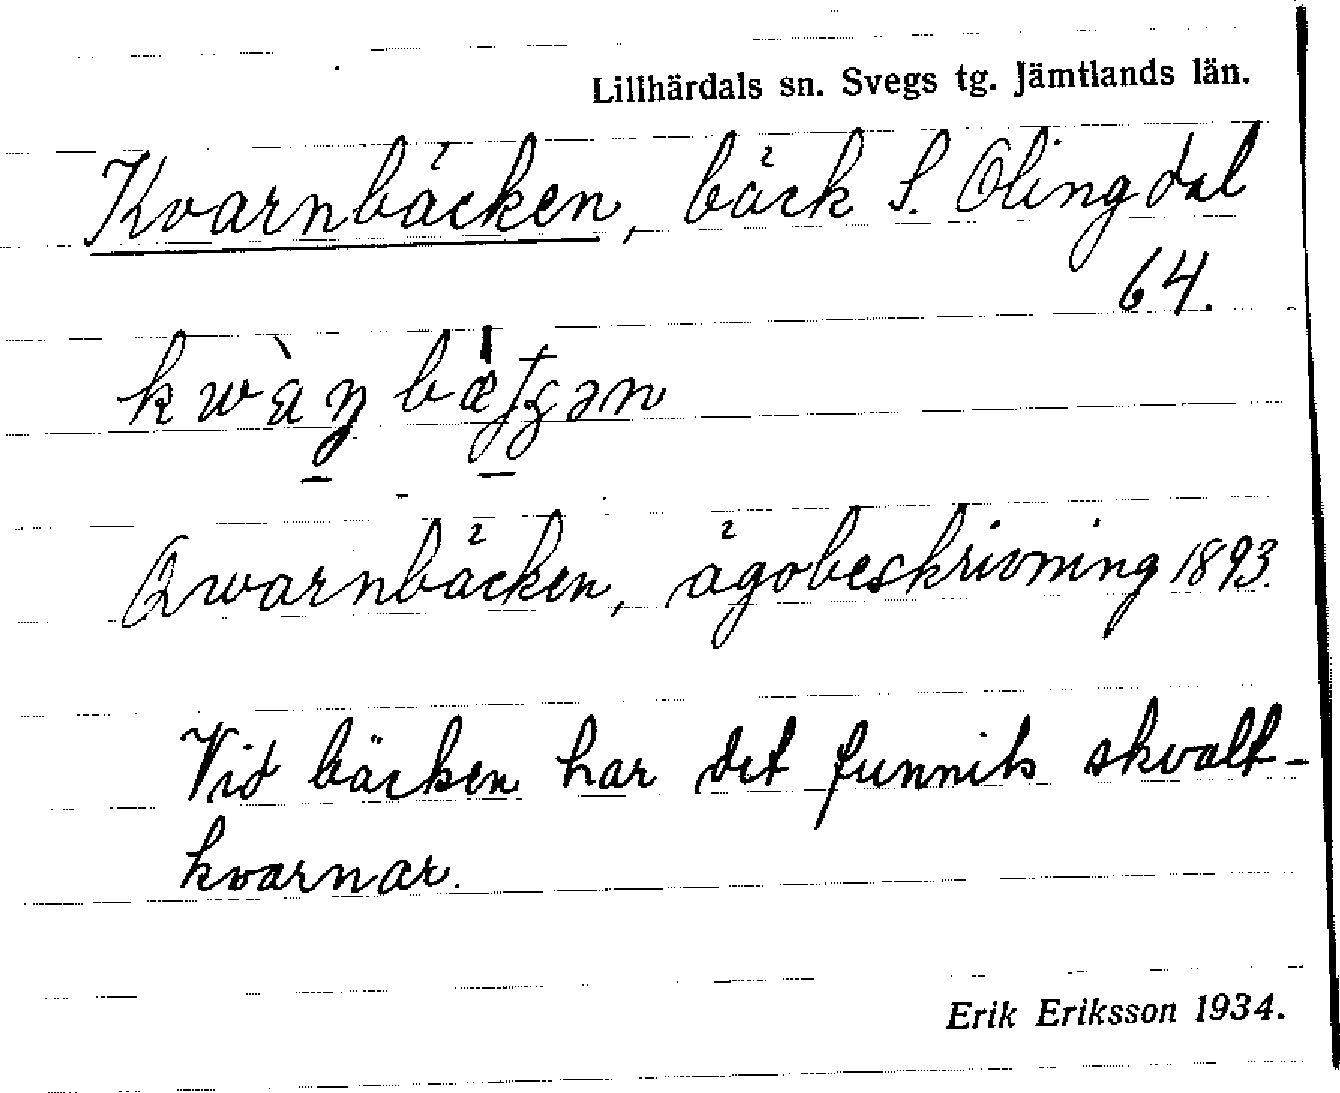 Lillhärdals sn. Svegs tg. Jämtlands län.
Kvarnbäcken, bäck S. Olingdal
64.
Qwarnbäcken, ägobeskrivning 1893.
Vid bäcken har det funnits skvalt-
kvarnar.
Erik Eriksson 1934.